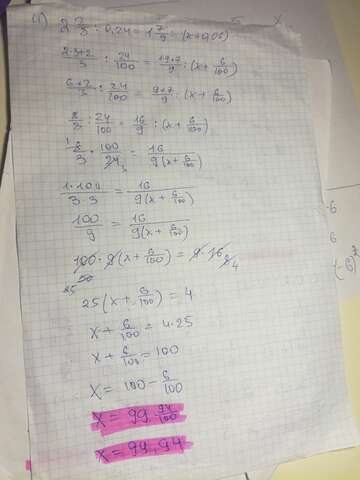 2 2/3 : 0,24 = 1 7/9 : (x + 0,06)
2·3+2/3 : 24/100 = 1·9+7/9 : (x + 6/100)
6+2/3 : 24/100 = 9+7/9 : (x + 6/100)
8/3 : 24/100 = 16/9 : (x + 6/100)
8/3 · 100/24 = 16/9(x + 6/100)
1·100/3·3 = 16/9(x + 6/100)
100/9 = 16/9(x + 6/100)
100·9(x + 6/100) = 9·16
25(x + 6/100) = 4
x + 6/100 = 4·25
x + 6/100 = 100
x = 100 - 6/100
x = 99 94/100
x = 99,94
-6
6
(-6)²